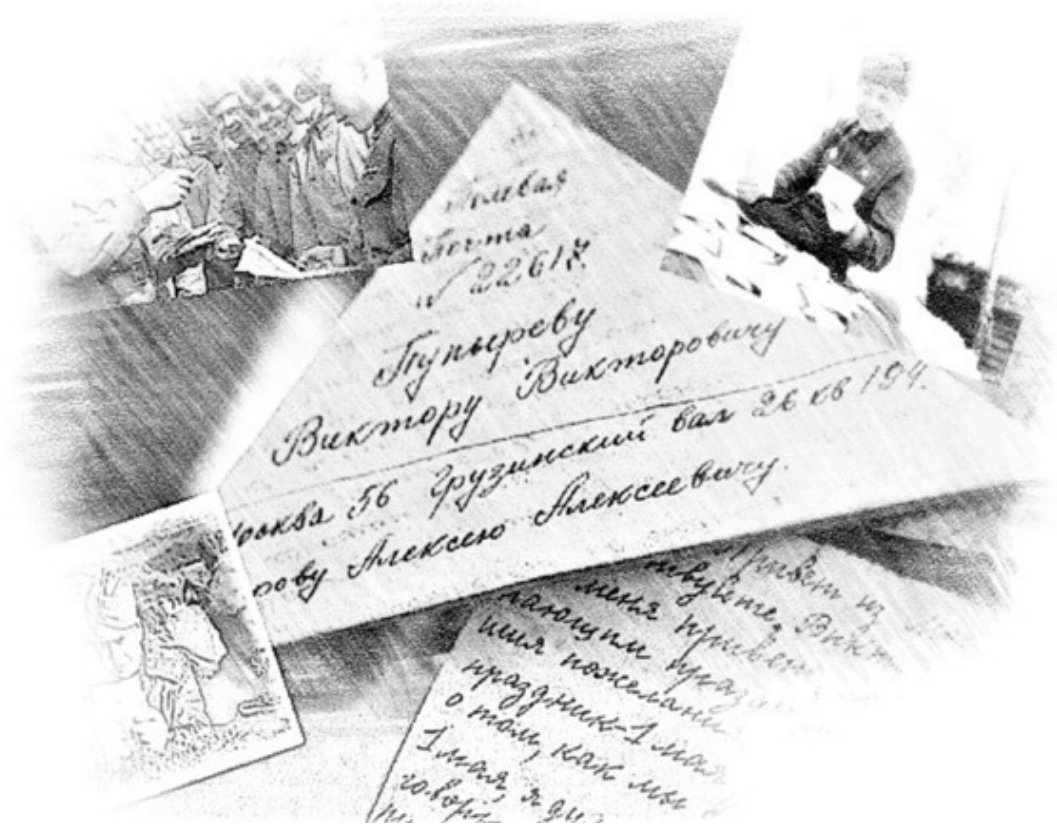 Полевая
Почта
№ 22617.
Пупыреву
Виктору Викторовичу
Москва 56 Грузинский вал 26 кв 194.
Алексею Алексеевичу.
Привет из
Викт
меня привет
ающим празд
пожелания
праздник-1 мая
о том, как мы
1 мая, я ду
говор